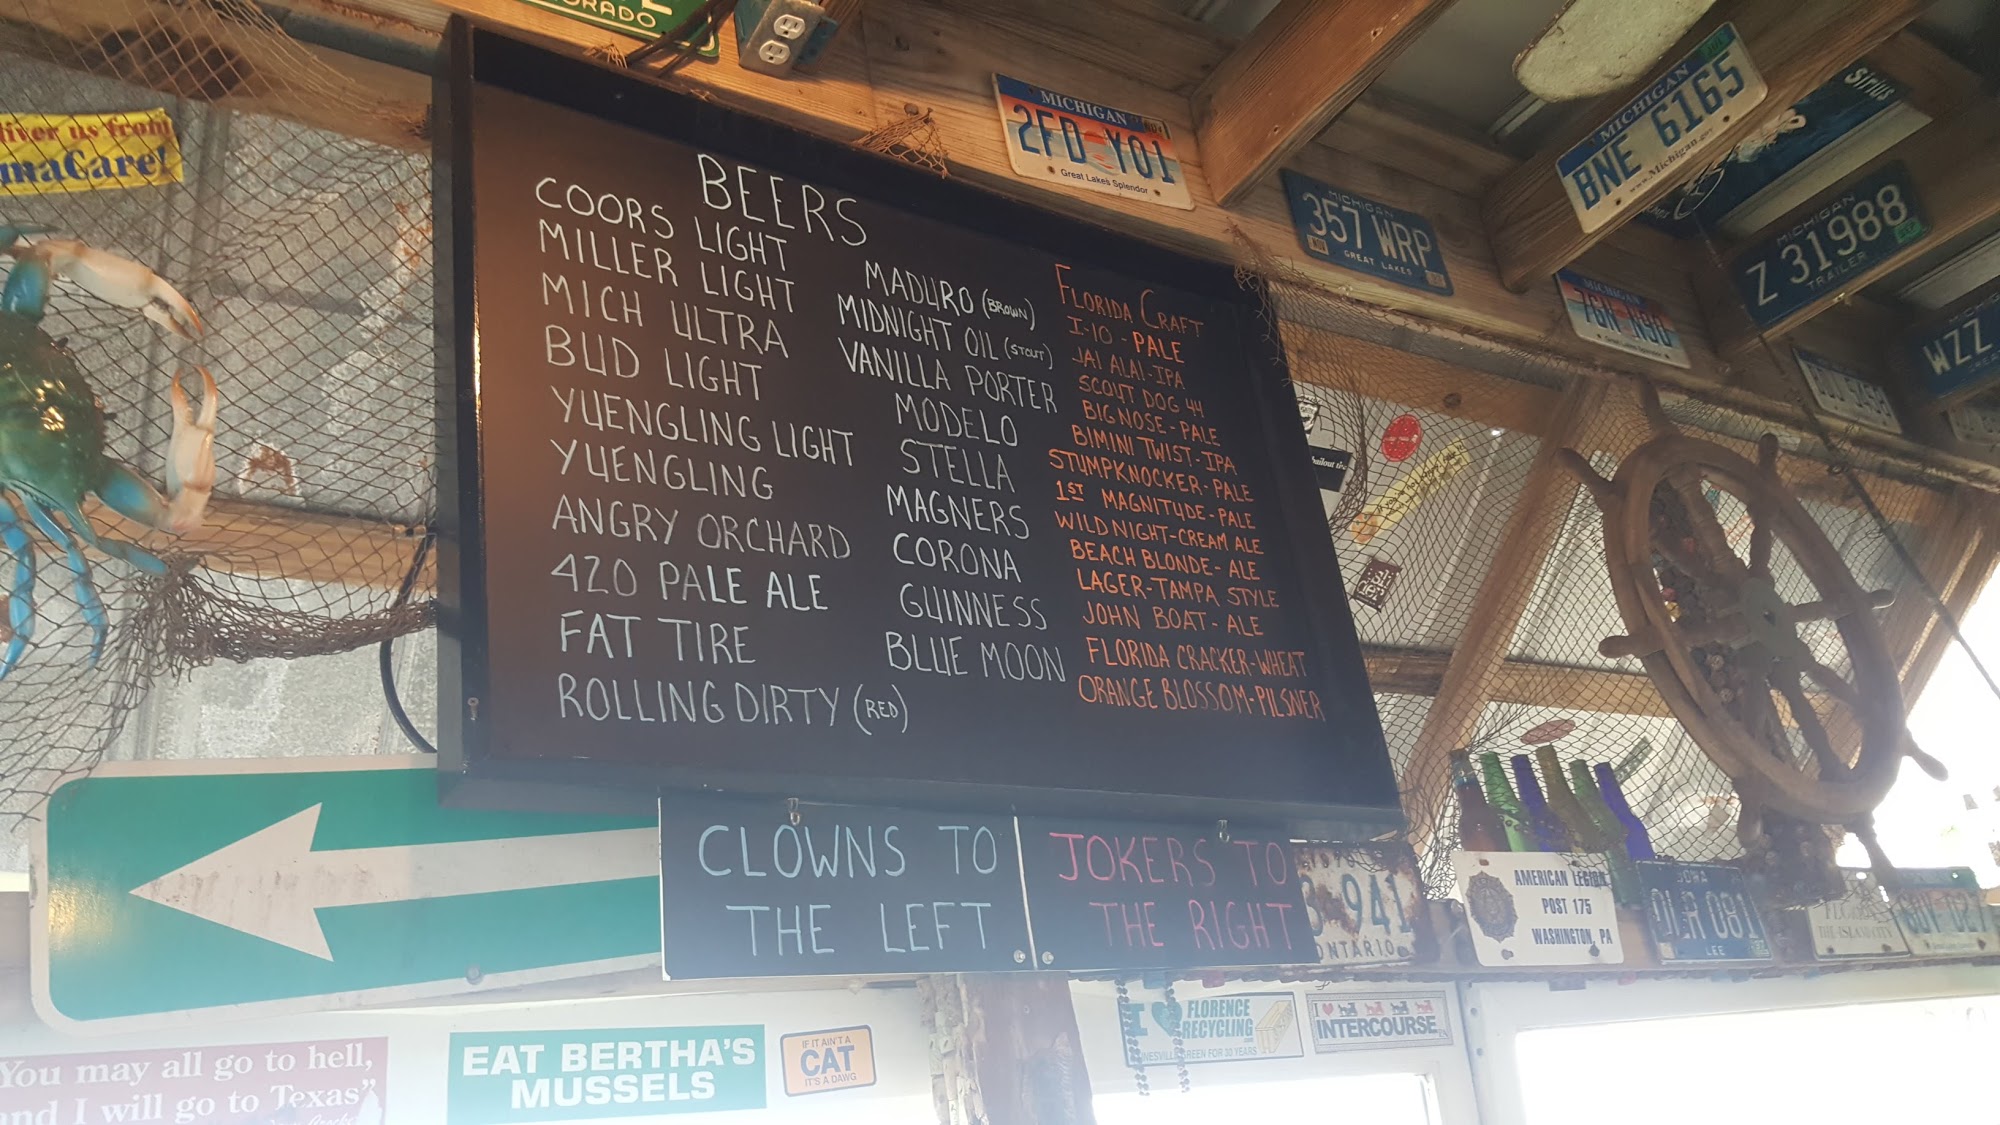 ORADO
liver us from
maCare!
MICHIGAN
2FD Y01
Great Lakes Splendor
MICHIGAN
BNE 6165
www.Michigan.gov
Sirius
MICHIGAN
357 WRP
GREAT LAKES
MICHIGAN
Z 31988
TRAILER
MICHIGAN
WZZ
BEERS
COORS LIGHT
MILLER LIGHT
MICH ULTRA
BUD LIGHT
YUENGLING LIGHT
YUENGLING
ANGRY ORCHARD
420 PALE ALE
FAT TIRE
ROLLING DIRTY (RED)
MADURO (BROWN)
MIDNIGHT OIL (STOUT)
VANILLA PORTER
MODELO
STELLA
MAGNERS
CORONA
GUINNESS
BLUE MOON
FLORIDA CRAFT
I-10 - PALE
JAI ALAI - IPA
SCOUT DOG 44
BIG NOSE - PALE
BIMINI TWIST - IPA
STUMPKNOCKER - PALE
1ST MAGNITUDE - PALE
WILD NIGHT - CREAM ALE
BEACH BLONDE - ALE
LAGER - TAMPA STYLE
JOHN BOAT - ALE
FLORIDA CRACKER - WHEAT
ORANGE BLOSSOM - PILSNER
CLOWNS TO
THE LEFT
JOKERS TO
THE RIGHT
941
ONTARIO
AMERICAN LEGION
POST 175
WASHINGTON, PA
IOWA
081
LEE
You may all go to hell,
and I will go to Texas"
EAT BERTHA'S
MUSSELS
IF IT AIN'T A
CAT
IT'S A DAWG
I
FLORENCE
RECYCLING
GREEN FOR 30 YEARS
I
INTERCOURSE